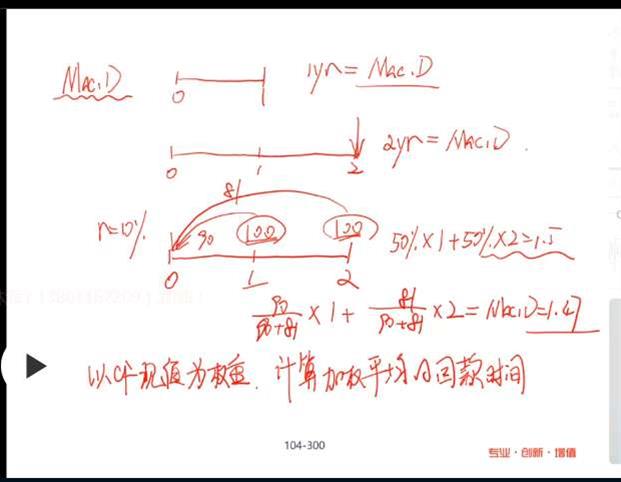 Mac.D 0 1 1yr = Mac.D
0 1 2 2yr = Mac.D.
r=10% 81 90 100 100 50%×1+50%×2=1.5
0 1 2
90/90+81 ×1+ 81/90+81 ×2= Mac.D=1.47
以CF现值为权重. 计算加权平均的回款时间
104-300
专业·创新·增值